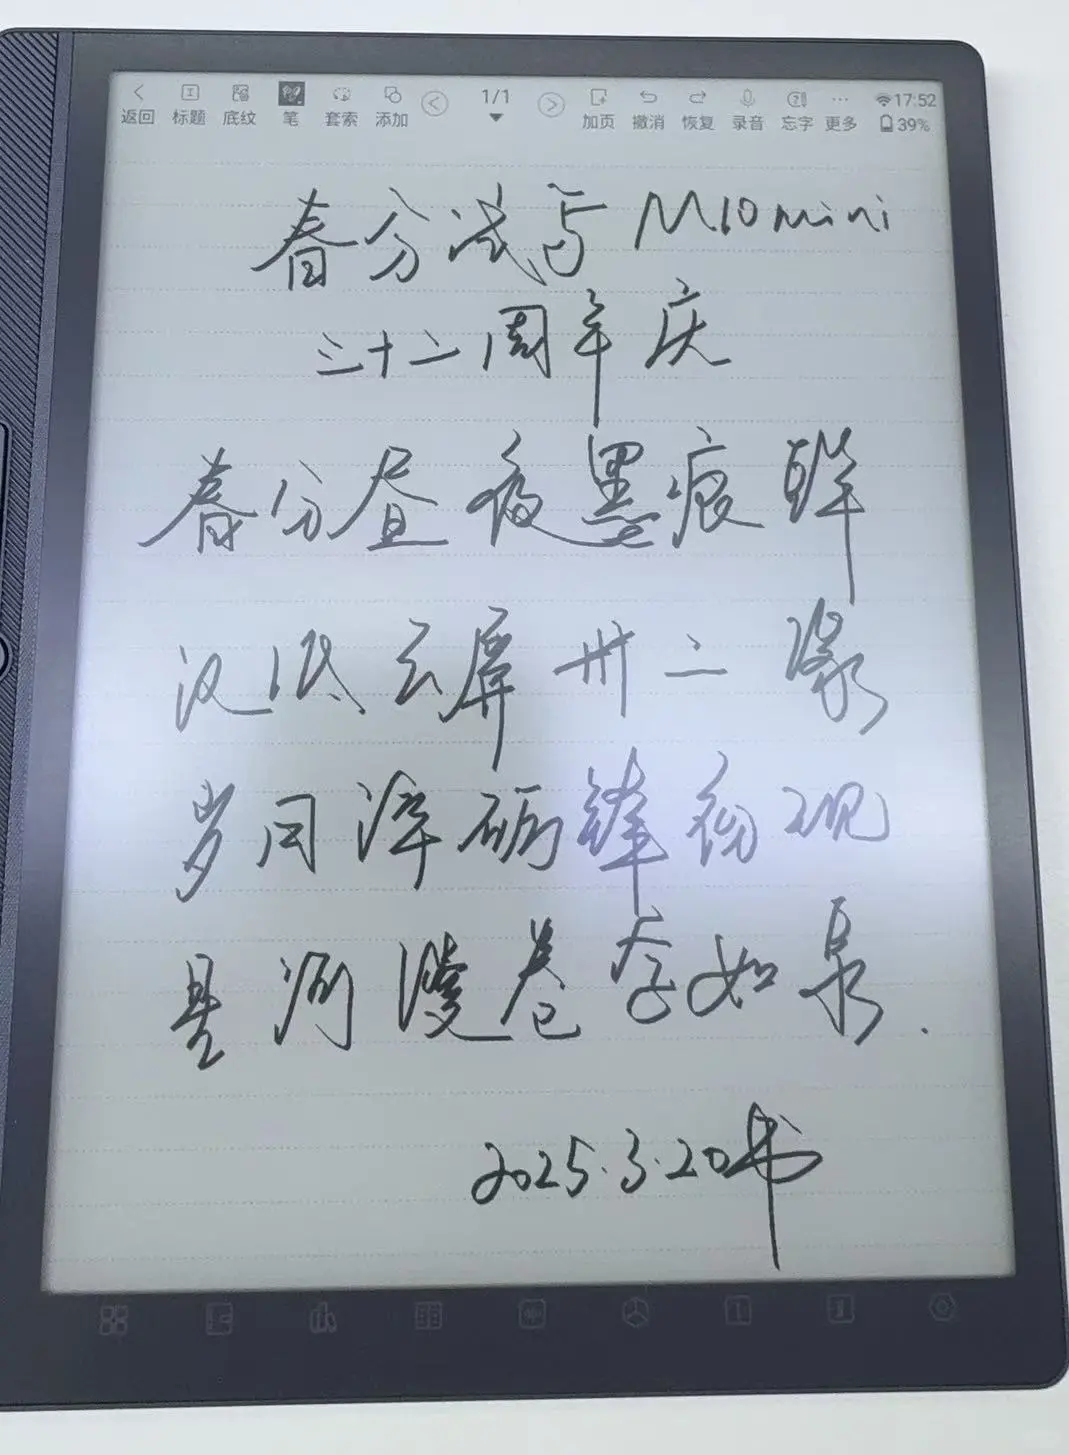 返回 标题 底纹 笔 套索 添加 1/1 加页 撤消 恢复 录音 忘字 更多 17:52 39%
春分试写M10mini
三十二周年庆
春分昼夜墨痕鲜
汉云屏卅二缘
岁月淬砺锋初现
星河漫卷字如泉.
2025.3.20书